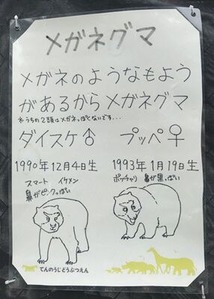 メガネグマ
メガネのようなもよう
があるからメガネグマ
※うちの2頭はメガネっぽくないです…
ダイスケ♂
プッペ♀
1990年12月4日生
1993年1月19日生
スマート イケメン
鼻がピンクっぽい
ポッチャリ
鼻が黒っぽい
てんのうじどうぶつえん